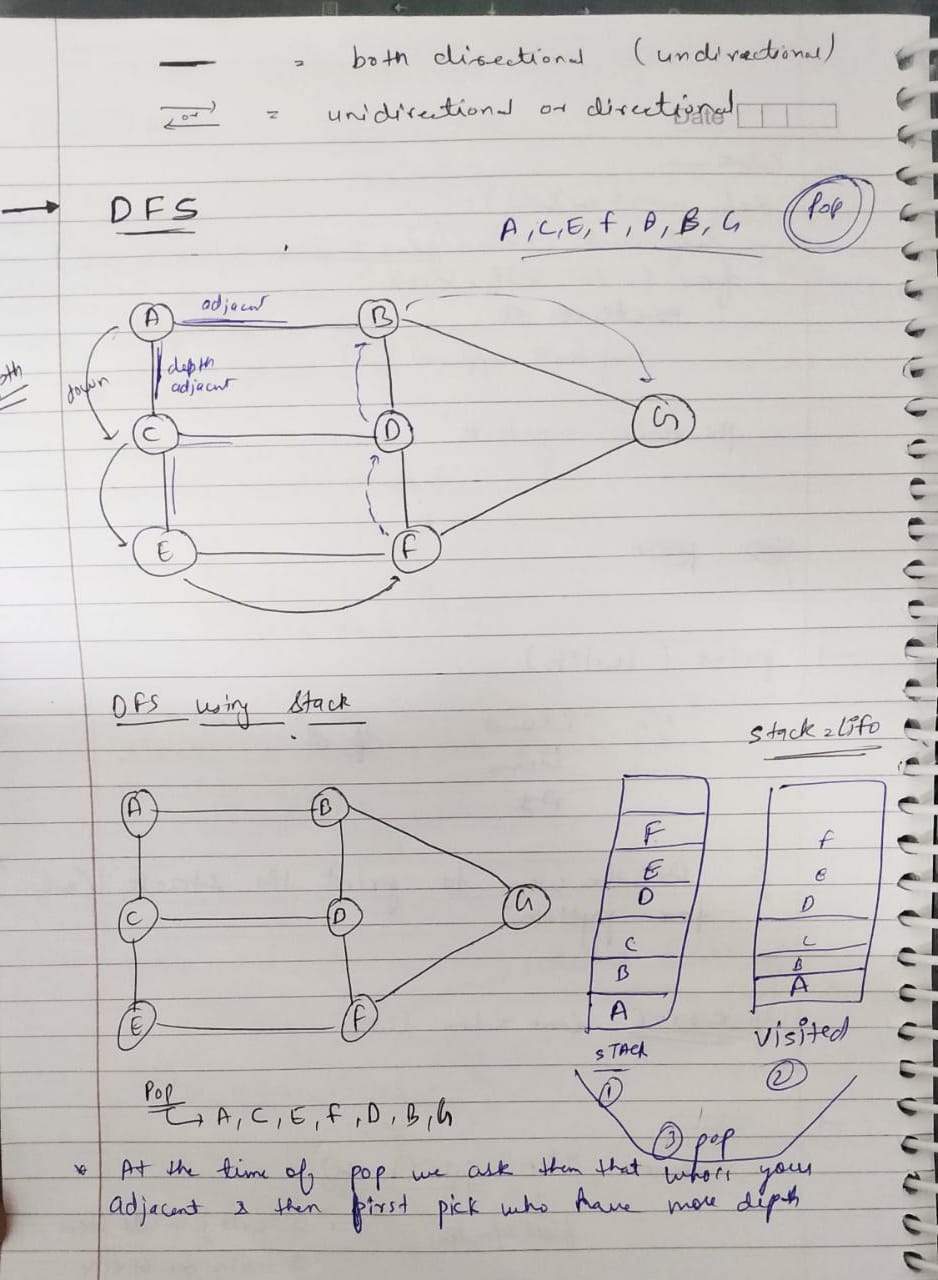 = both directional (undirectional)
or = unidirectional or directional
Date
DFS
A, C, E, F, D, B, G
Pop
A adjacent B
depth
adjacent
down
C D G
E F
DFS using Stack
Stack = Lifo
A B
C D G
E F
F
E
D
C
B
A
STACK
①
F
E
D
C
B
A
Visited
②
③ pop
Pop
A, C, E, F, D, B, G
* At the time of pop we ask them that who's your
adjacent & then first pick who have more depth